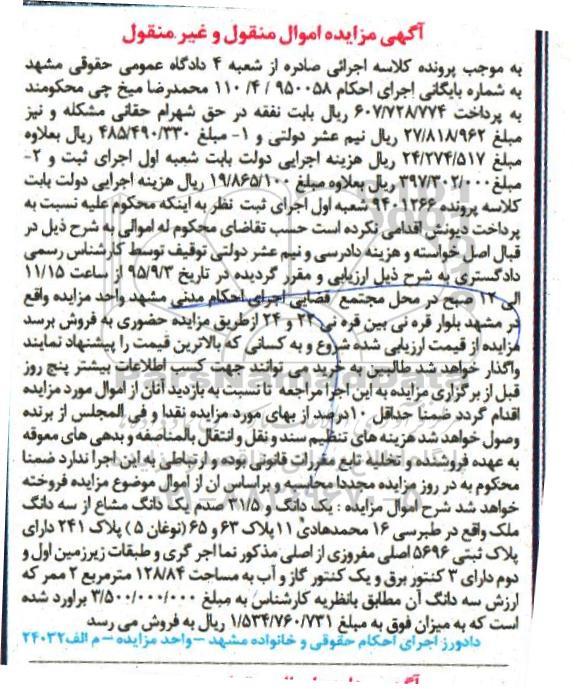 آگهی مزایده اموال منقول و غیر منقول
به موجب پرونده کلاسه اجرائی صادره از شعبه ۴ دادگاه عمومی حقوقی مشهد
به شماره بایگانی اجرای احکام ۹۵۰۰۵۸ / ۴/ ۱۱۰ محمدرضا میخ چی محکومند
به پرداخت ۶۰۷/۷۲۸/۷۷۴ ریال بابت نفقه در حق شهرام حقانی مشکله و نیز
مبلغ ۲۷/۸۱۸/۹۶۲ ریال نیم عشر دولتی و ۱- مبلغ ۴۸۵/۴۹۰/۳۳۰ ریال بعلاوه
مبلغ ۲۴/۲۷۴/۵۱۷ ریال هزینه اجرایی دولت بابت شعبه اول اجرای ثبت و ۲-
مبلغ ۳۹۷/۳۰۲/۰۰۰ ریال بعلاوه مبلغ ۱۹/۸۶۵/۱۰۰ ریال هزینه اجرایی دولت بابت
کلاسه پرونده ۹۴۰۱۲۶۶ شعبه اول اجرای ثبت نظر به اینکه محکوم علیه نسبت به
پرداخت دیونش اقدامی نکرده است حسب تقاضای محکوم له اموالی به شرح ذیل در
قبال اصل خواسته و هزینه دادرسی و نیم عشر دولتی توقیف توسط کارشناس رسمی
دادگستری به شرح ذیل ارزیابی و مقرر گردیده در تاریخ ۹۵/۹/۳ از ساعت ۱۱/۱۵
الی ۱۲ صبح در محل مجتمع قضایی اجرای احکام مدنی مشهد واحد مزایده واقع
در مشهد بلوار قره نی بین قره نی ۲۲ و ۲۴ ازطریق مزایده حضوری به فروش برسد
مزایده از قیمت ارزیابی شده شروع و به کسانی که بالاترین قیمت را پیشنهاد نمایند
واگذار خواهد شد طالبین به خرید می توانند جهت کسب اطلاعات بیشتر پنج روز
قبل از برگزاری مزایده به این اجرا مراجعه تا نسبت به بازدید آنان از اموال مورد مزایده
اقدام گردد ضمنا حداقل ۱۰درصد از بهای مورد مزایده نقدا و فی المجلس از برنده
وصول خواهد شد هزینه های تنظیم سند و نقل و انتقال بالمناصفه و بدهی های معوقه
به عهده فروشنده و تخلیه تابع مقررات قانونی بوده و ارتباطی به این اجرا ندارد ضمنا
محکوم به در روز مزایده مجددا محاسبه و براساس ان از اموال موضوع مزایده فروخته
خواهد شد شرح اموال مزایده : یک دانگ و ۳۱/۵ صدم یک دانگ مشاع از سه دانگ
ملک واقع در طبرسی ۱۶ محمدهادی ۱۱ پلاک ۶۳ و ۶۵ (نوغان ۵ ) پلاک ۲۴۱ دارای
پلاک ثبتی ۵۶۹۶ اصلی مفروزی از اصلی مذکور نما اجر گری و طبقات زیرزمین اول و
دوم دارای ۳ کنتور برق و یک کنتور گاز و آب به مساحت ۱۲۸/۸۴ مترمربع ۲ ممر که
ارزش سه دانگ آن مطابق بانظریه کارشناس به مبلغ ۳/۵۰۰/۰۰۰/۰۰۰ براورد شده
است که به میزان فوق به مبلغ ۱/۵۳۴/۷۶۰/۷۳۱ ریال به فروش می رسد
دادورز اجرای احکام حقوقی و خانواده مشهد –واحد مزایده –م الف۲۴۰۳۲
ParsNamadData